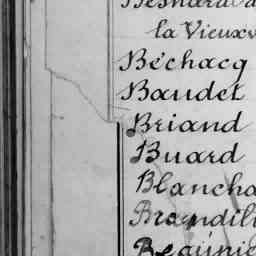 la Vieuxv
Béchacq
Baudet
Briand
Buard
Blancha
Brandili
Beaunie